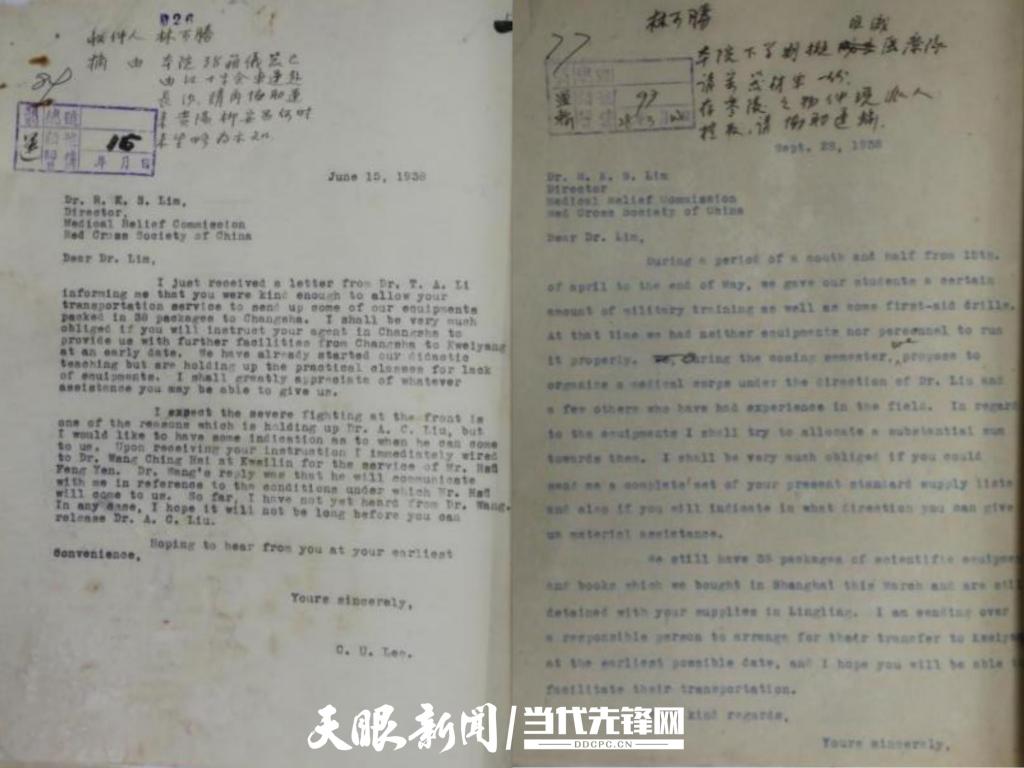 026
收件人 林可勝
摘由 本院38箱儀器已
由紅十字会車運赴
長沙,請再協助運
15
年 月 日
June 15, 1938
Dr. R. K. S. Lim,
Director,
Medical Relief Commission
Red Cross Society of China
Dear Dr. Lim,
I just received a letter from Dr. T. A. Li
informing me that you were kind enough to allow your
transportation service to send up some of our equipments
packed in 38 packages to Changsha. I shall be very much
obliged if you will instruct your agent in Changsha to
provide us with further facilities from Changsha to Kweiyang
at an early date. We have already started our didactic
teaching but are holding up the practical classes for lack
of equipments. I shall greatly appreciate of whatever
assistance you may be able to give us.
I expect the severe fighting at the front is
one of the reasons which is holding up Dr. A. C. Liu, but
I would like to have some indication as to when he can come
to us. Upon receiving your instruation I immediately wired
to Dr. Wang Ching Hai at Kweilin for the service of Mr. Hsü
Feng Yen. Dr. Wang's reply was that he will communicate
with me in reference to the conditions under which Mr. Hsü
will come to us. So far, I have not yet heard from Dr. Wang.
In any case, I hope it will not be long before you can
release Dr. A. C. Liu.
Hoping to hear from you at your earliest
Convenience,
Yours sincerely,
C. U. Lee.
77
林可勝
本院下学期擬 医療隊
請寄器材單一份.
在零陵之物件現派人
提取,請協助運輸.
Sept. 28, 1938
Dr. R. K. S. Lim
Director
Medical Relief Commission
Red Cross Society of China
Dear Dr. Lim,
During a period of a month and half from 15th.
of april to the end of May, we gave our students a certain
amount of military training as well as some first-aid drills.
At that time we had neither equipments nor personnel to run
it properly. During the coming semester, we propose to
organize a medical corps under the direction of Dr. Liu and
a few others who have had experience in the field. In regard
to the equipments I shall try to allocate a substantial sum
towards them. I shall be very much obliged if you could
send me a complete set of your present standard supply lists
and also if you will indicate in what direction you can give
us material assistance.
We still have 38 packages of scientific equipm
and books which we bought in Shanghai this March and are still
detained with your supplies in Lingling. I am sending over
a responsible person to arrange for their transfer to Kweiyang
at the earliest possible date, and I hope you will be able t
facilitate their transportation.
kind regards,
Yours sincerely,
天眼新闻/当代先锋网
DDCPC.CN